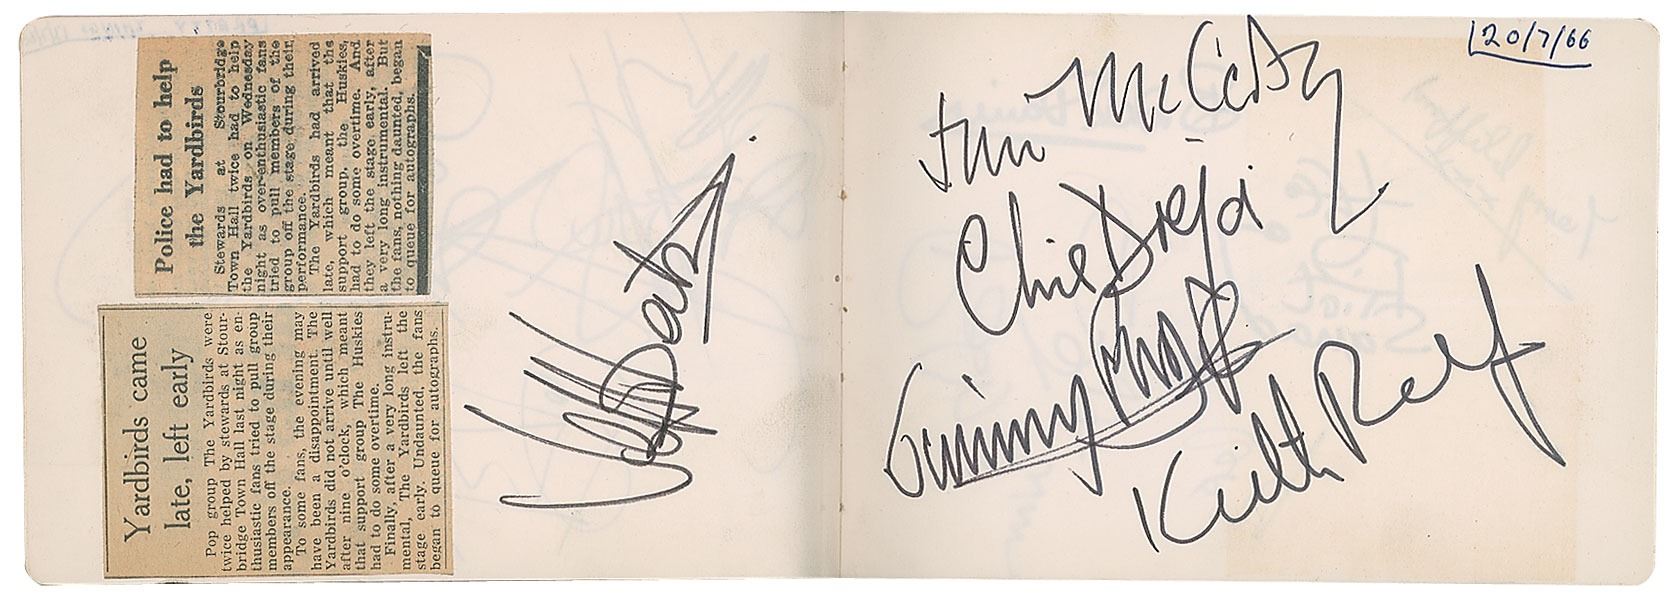 Police had to help
the Yardbirds
Stewards at Stourbridge
Town Hall twice had to help
the Yardbirds on Wednesday
night as over-enthusiastic fans
tried to pull members of the
group off the stage during their
performance.
The Yardbirds had arrived
late, which meant that the
support group, the Huskies,
had to do some overtime. And
they left the stage early, after
a very long instrumental. But
the fans, nothing daunted, began
to queue for autographs.
Yardbirds came
late, left early
Pop group The Yardbirds were
twice helped by stewards at Stour-
bridge Town Hall last night as en-
thusiastic fans tried to pull group
members off the stage during their
appearance.
To some fans, the evening may
have been a disappointment. The
Yardbirds did not arrive until well
after nine o'clock, which meant
that support group The Huskies
had to do some overtime.
Finally, after a very long instru-
mental, The Yardbirds left the
stage early. Undaunted, the fans
began to queue for autographs.
Jeff Beck
20/7/66
Jim McCarty
Chris Dreja
Jimmy Page
Keith Relf